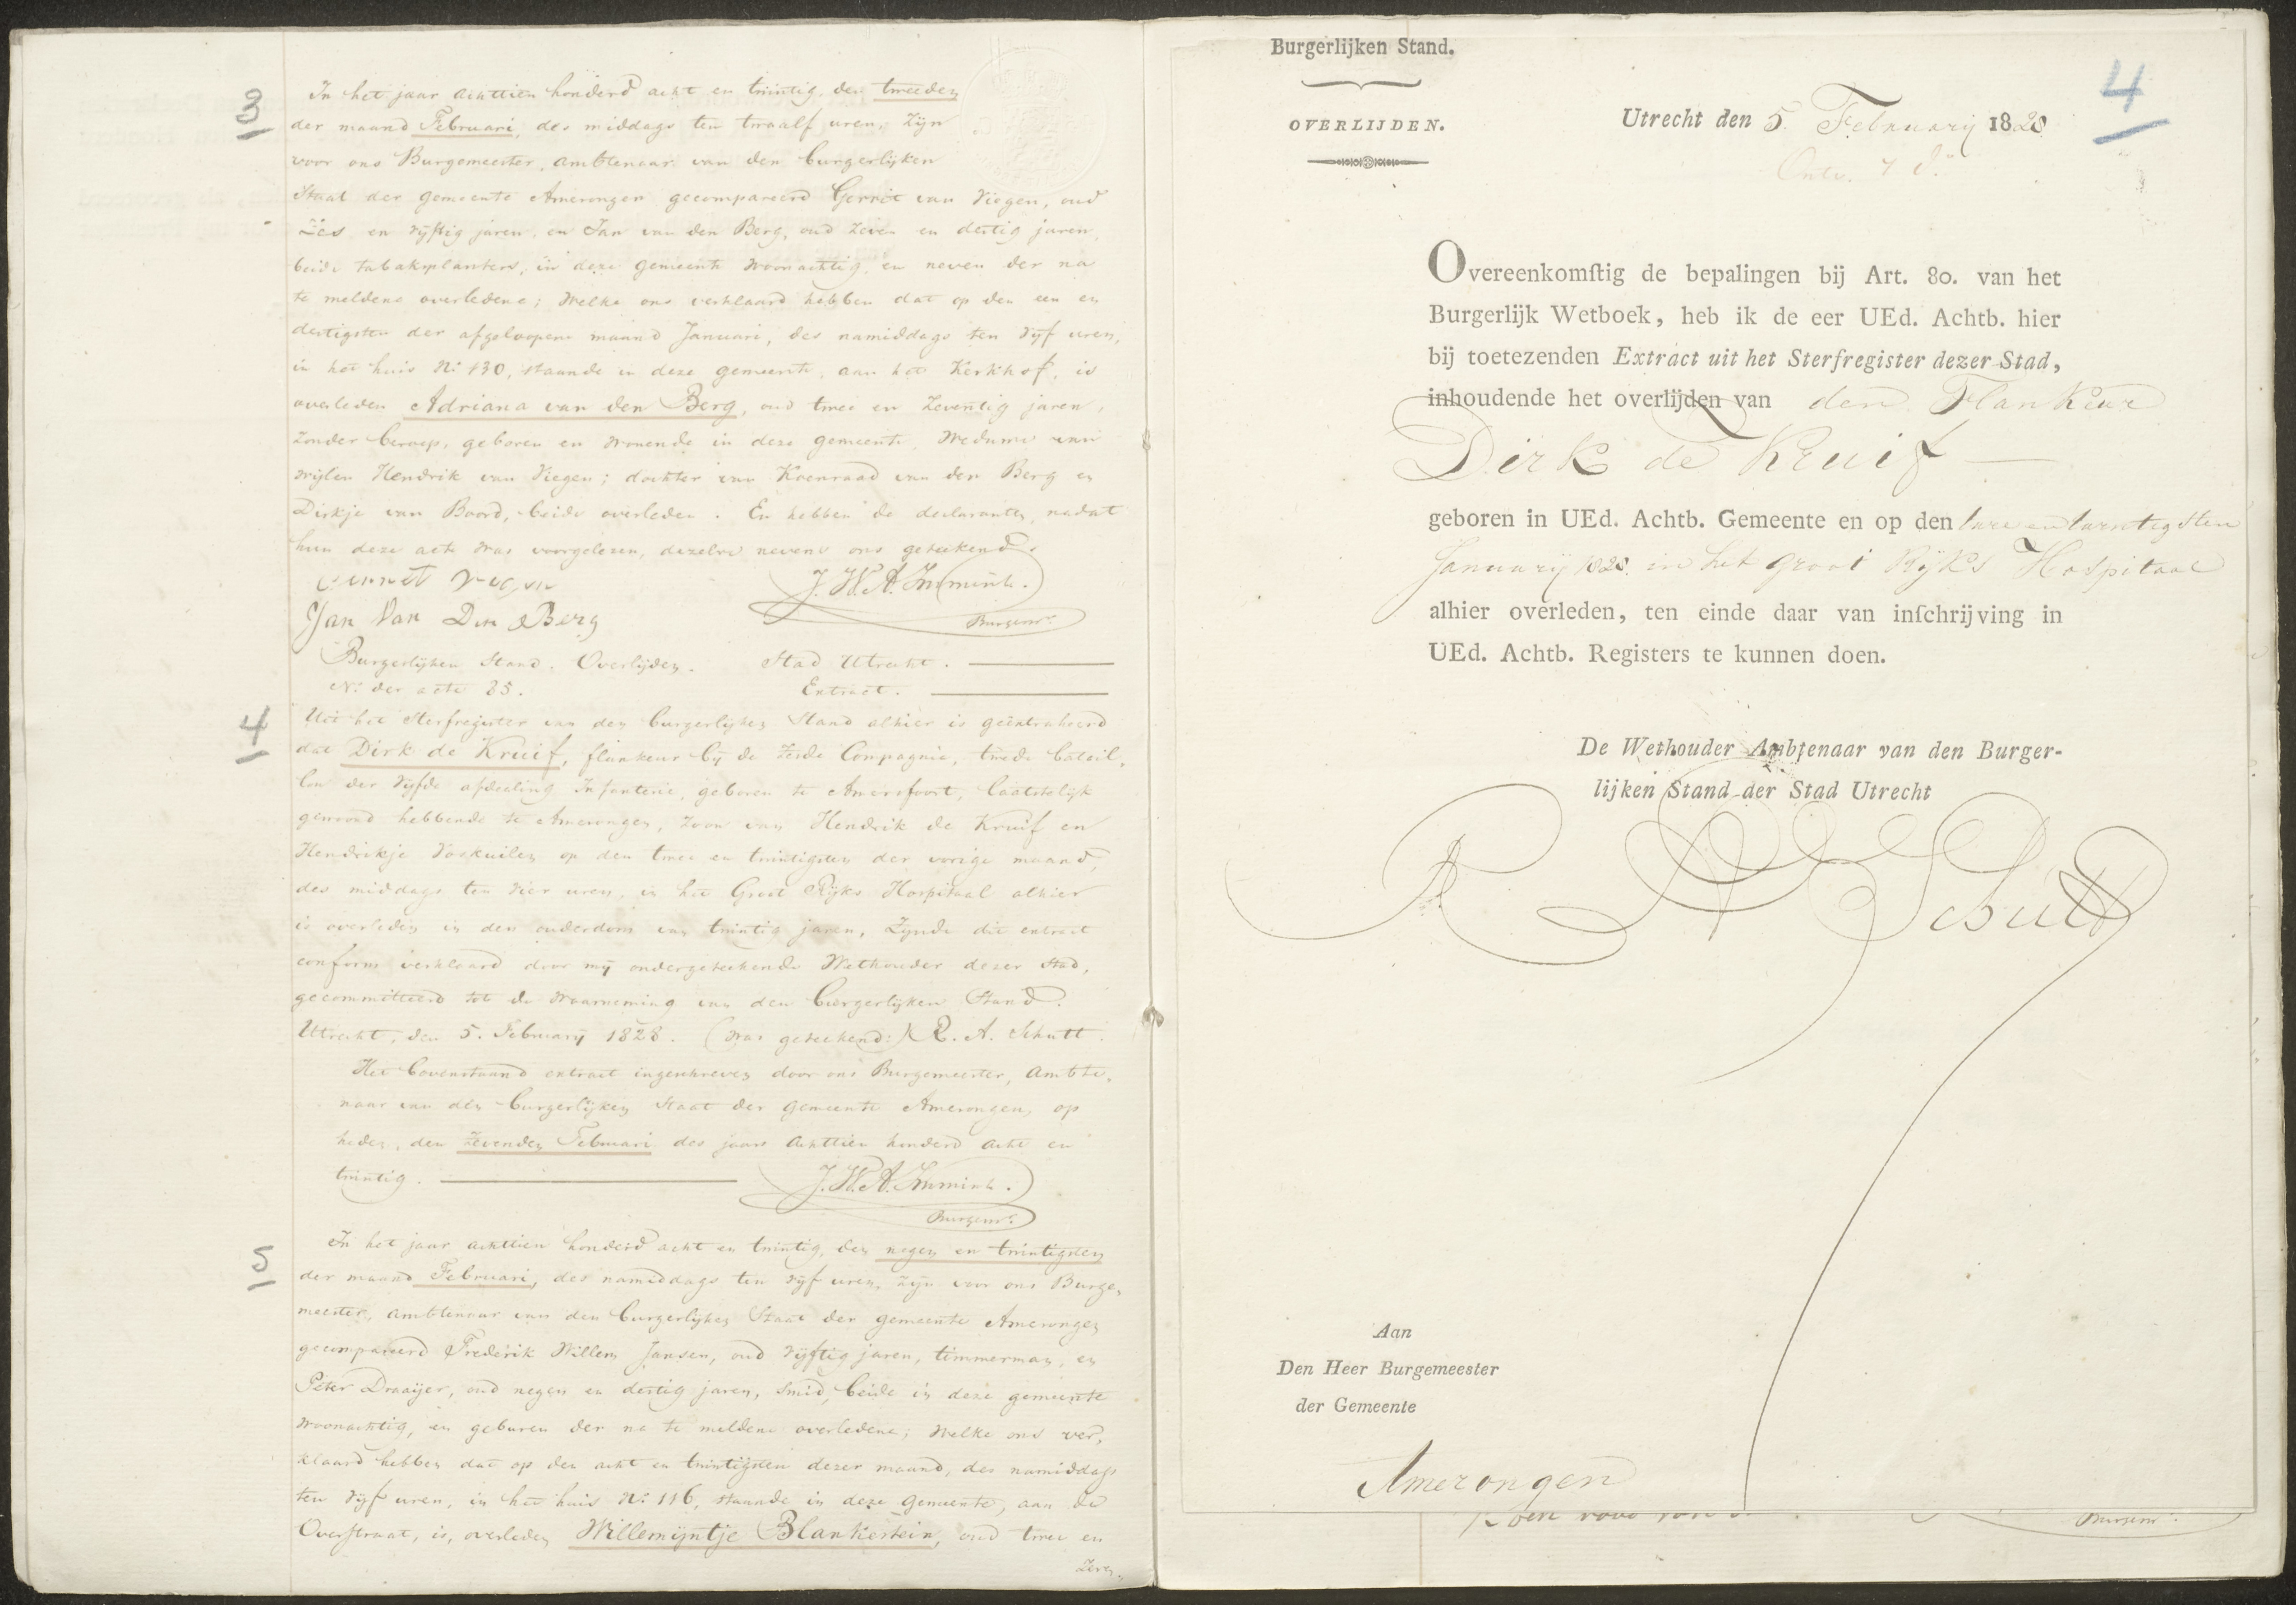 3
In het jaar achttien honderd acht en twintig, den tweeden
der maand Februari, des middags ten twaalf uren, zijn
voor ons Burgemeester, ambtenaar van den burgerlijken
Staat der gemeente Amerongen gecompareerd Gerrit van Viegen, oud
Zes en vijftig jaren, en Jan van den Berg, oud zeven en dertig jaren,
beide tabaksplanters, in deze gemeente woonachtig, en neven der na
te meldene overledene; welke ons verklaard hebben dat op den een en
dertigsten der afgeloopene maand Januari, des namiddags ten vijf uren,
in het huis No 130, staande in deze gemeente, aan het Kerkhof, is
overleden Adriana van den Berg, oud twee en zeventig jaren,
zonder beroep, geboren en wonende in deze gemeente, Weduwe van
wijlen Hendrik van Viegen; dochter van Koenraad van den Berg en
Dirkje van Boord, beide overleden. En hebben de declaranten, nadat
hun deze acte was voorgelezen, dezelve nevens ons geteekend.
J. W. A. Immink.
Jan Van Den Berg
Burgemr.
Burgerlijken Stand. Overlijden. Stad Utrecht.
No der acte 85. Extract.
4
Uit het Sterfregister van den burgerlijken Stand alhier is geëxtraheerd
dat Dirk de Kruif, flankeur bij de zesde Compagnie, twede batail,
lon der vijfde afdeeling Infanterie, geboren te Amersfoort, laatstelijk
gewoond hebbende te Amerongen, zoon van Hendrik de Kruif en
Hendrikje Voskuilen op den twee en twintigsten der vorige maand,
des middags ten vier uren, in het Groot Rijks Hospitaal alhier
is overleden in den ouderdom van twintig jaren, Zijnde dit extract
conform verklaard door mij ondergeteekende Wethouder dezer Stad,
gecommitteerd tot de waarneming van den burgerlijken Stand.
Utrecht, den 5. February 1828. (was geteekend:) R. A. Schutt.
Het bovenstaand extract ingeschreven door ons Burgemeester, ambte,
naar van den burgerlijken Staat der gemeente Amerongen, op
heden, den zevenden Februari des jaars achttien honderd acht en
twintig.
J. W. A. Immink.
Burgemr.
5
In het jaar achttien honderd acht en twintig, den negen en twintigsten
der maand Februari, des namiddags ten vijf uren, zijn voor ons Burge,
meester, ambtenaar van den burgerlijken Staat der gemeente Amerongen
gecompareerd Frederik Willem Jansen, oud vijftig jaren, timmerman, en
Peter Draaijer, oud negen en dertig jaren, smid, beide in deze gemeente
woonachtig, en geburen der na te meldene overledene; welke ons ver,
klaard hebben dat op den acht en twintigsten dezer maand, des namiddags
ten vijf uren, in het huis No 116, staande in deze gemeente, aan de
Overstraat, is, overleden Willemijntje Blankestein, oud twee en
zeven,
Burgerlijken Stand.
OVERLIJDEN.
4
Utrecht den 5 February 1828
Overeenkomſtig de bepalingen bij Art. 80. van het
Burgerlijk Wetboek, heb ik de eer UEd. Achtb. hier
bij toetezenden Extract uit het Sterfregister dezer Stad,
inhoudende het overlijden van den Flankeur
Dirk de Kruif
geboren in UEd. Achtb. Gemeente en op den twee en twintigsten
January 1828 in het Groot Rijks Hospitaal
alhier overleden, ten einde daar van inſchrijving in
UEd. Achtb. Registers te kunnen doen.
De Wethouder Ambtenaar van den Burger-
lijken Stand der Stad Utrecht
R A Schutt
Aan
Den Heer Burgemeester
der Gemeente
Amerongen
Burgemr.